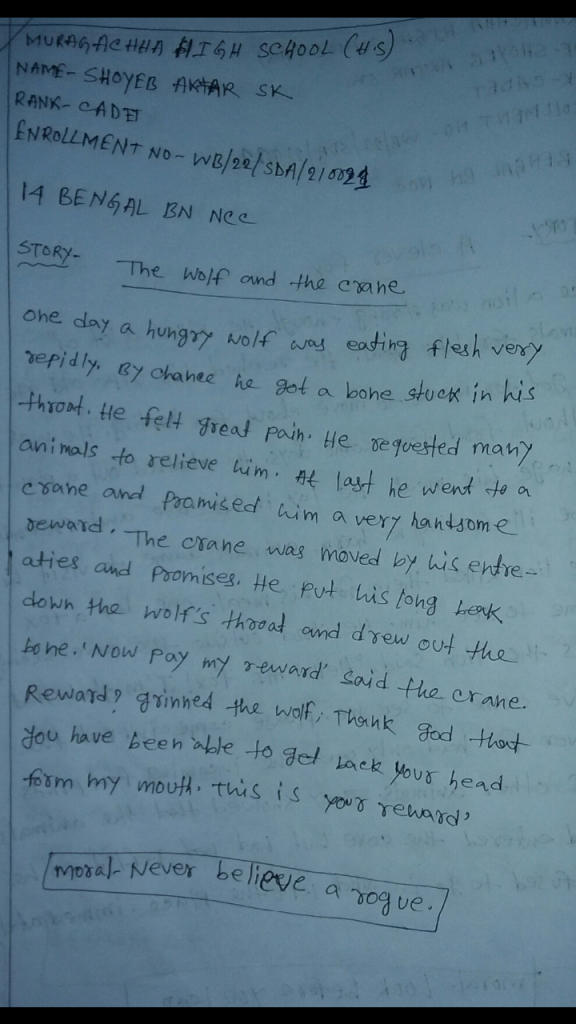 MURAGACHHA HIGH SCHOOL (H.S)
NAME- SHOYEB AKTAR SK
RANK- CADET
ENROLLMENT NO- WB/22/SDA/210021
14 BENGAL BN NCC
STORY- The Wolf and the crane
One day a hungry wolf was eating flesh very
repidly. By chance he got a bone stuck in his
throat. He felt great pain. He requested many
animals to relieve him. At last he went to a
crane and promised him a very handsome
reward. The crane was moved by his entre-
aties and promises. He put his long beak
down the wolf's throat and drew out the
bone. 'Now pay my reward' said the crane.
Reward? grinned the wolf; Thank god that
you have been able to get back your head
form my mouth. This is your reward'
moral- Never believe a rogue.